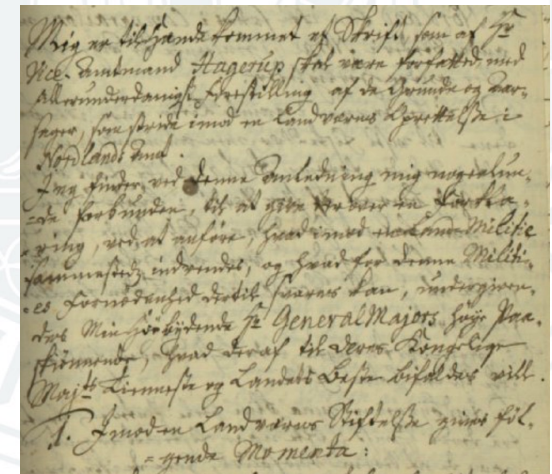 Mig er til Hænde kommet et Skrift, som af Hr
Vice-Amtmand Hagerup skal være forfatted med
Allerunderdanigst Forestilling af de Grunde og Aar-
sager, som stride imod en Landværns Oprettelse i
Nordlands Amt.
Jeg finder ved denne Anledning mig nogenlun-
de forbunden, til at give her over en Forkla-
ring, ved at anføre, hvad imod Land Militie
sammesteds indvendes, og hvad for denne Militi-
es Fornødenhed dertil svares kan, undergiven-
des Min Høybydende Hr General Majors høye Paa-
skiønnende, hvad deraf til Deres Kongelige
Majts Tienneste og Landets Beste bifaldes vill.
1. Imod en Landværns Stiftelse gives føl-
gende Momenta: